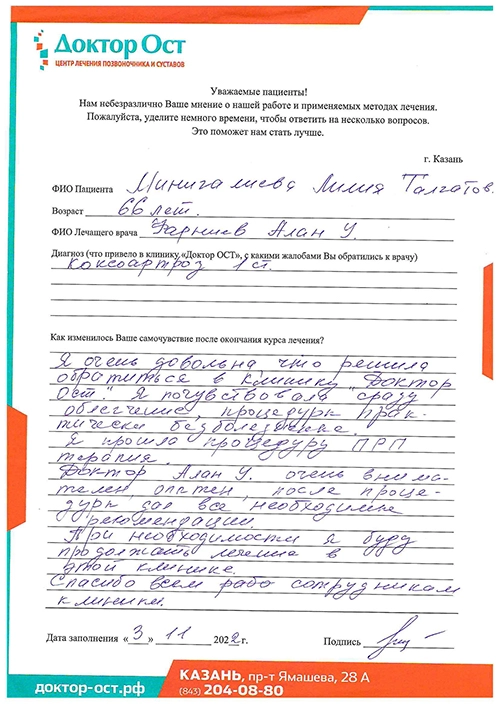 Доктор Ост
ЦЕНТР ЛЕЧЕНИЯ ПОЗВОНОЧНИКА И СУСТАВОВ
Уважаемые пациенты!
Нам небезразлично Ваше мнение о нашей работе и применяемых методах лечения.
Пожалуйста, уделите немного времени, чтобы ответить на несколько вопросов.
Это поможет нам стать лучше.
г. Казань
ФИО Пациента Минигалиева Лилия Талгатов.
Возраст 66 лет.
ФИО Лечащего врача Алан У.
Диагноз (что привело в клинику «Доктор ОСТ», с какими жалобами Вы обратились к врачу)
Коксоартроз 1 ст.
Как изменилось Ваше самочувствие после окончания курса лечения?
Я очень довольна что решила
обратиться в клинику "Доктор
Ост". Я почувствовала сразу
облегчение, процедуры прак-
тически безболезненно.
Я прошла процедуру ПРП
терапия.
Доктор Алан У. очень внима-
телен, опытен, после проце-
дуры дал все необходимые
рекомендации.
При необходимости я буду
продолжать лечение в
этой клинике.
Спасибо всем сотрудникам
клиники.
Дата заполнения «3» 11 2022 г. Подпись
доктор-ост.рф
КАЗАНЬ, пр-т Ямашева, 28 А
(843) 204-08-80